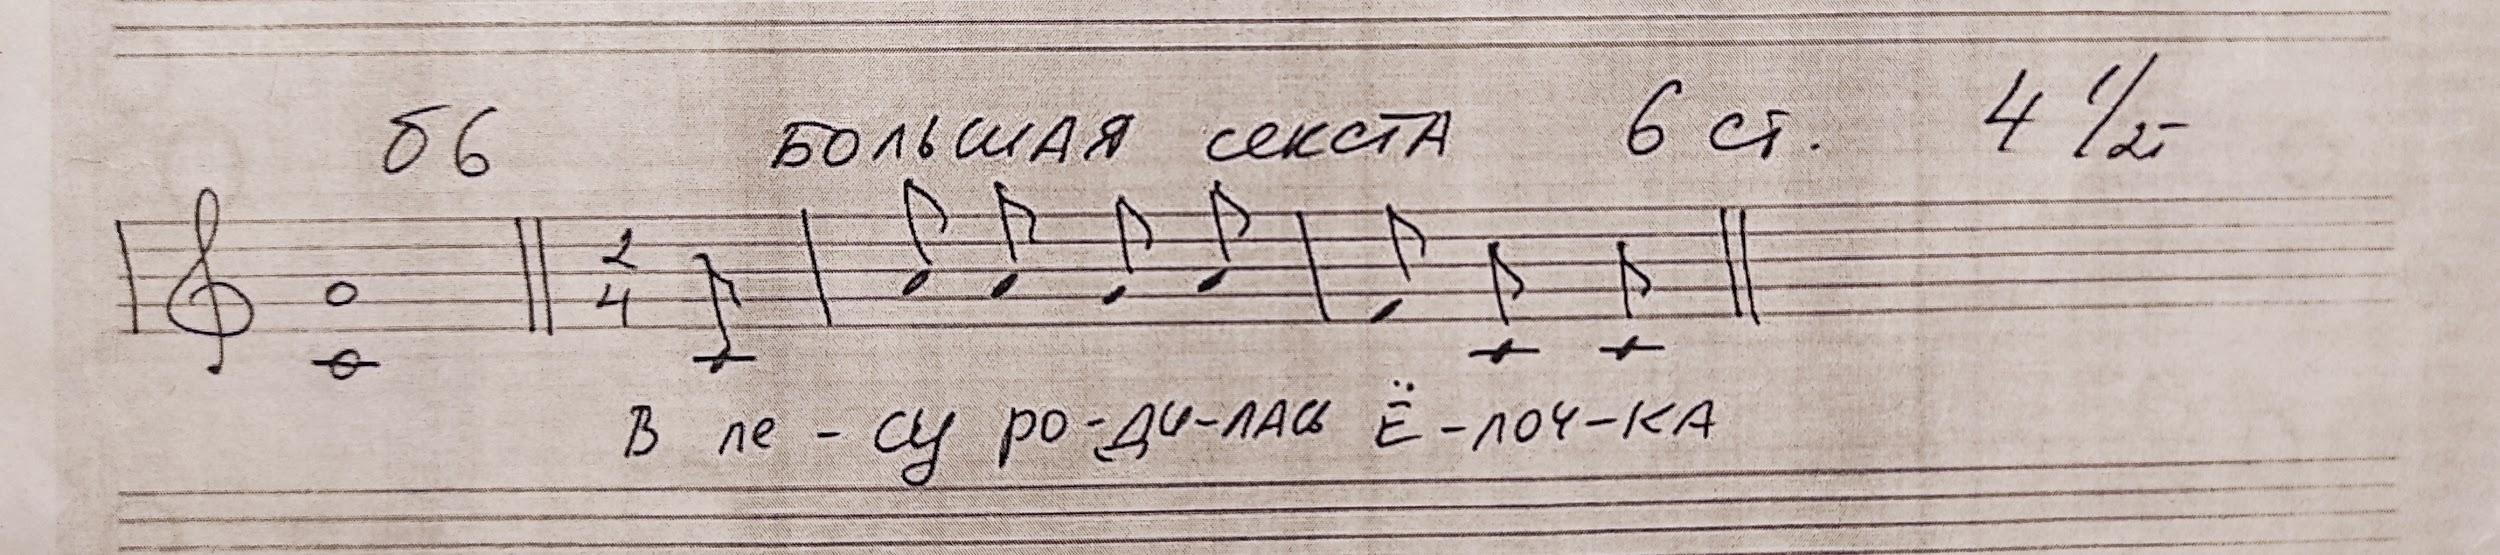 б6 БОЛЬШАЯ СЕКСТА 6 ст. 4 1/2т
2
4
В ле-су ро-ди-лась Ё-лоч-КА